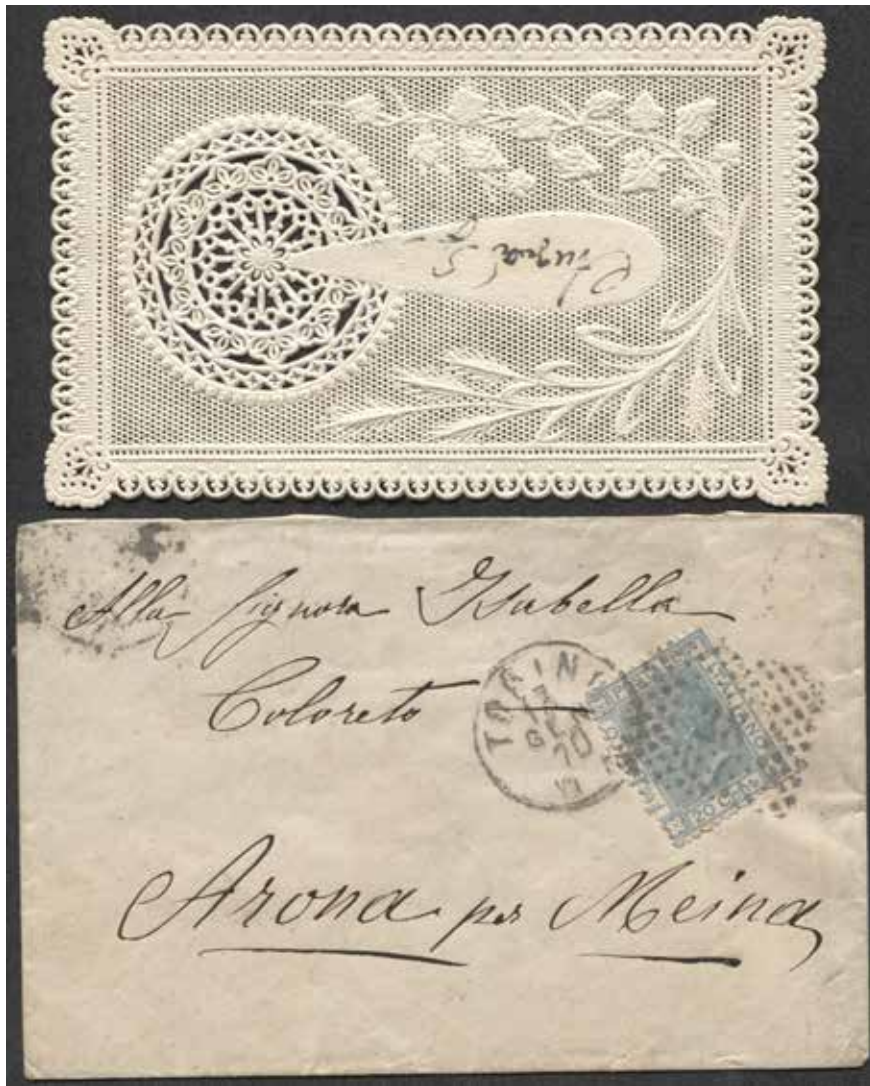 Alla Signora Isabella
Coloreto
TORINO
70
POSTALE ITALIANO
20 Cent
Arona per Meina